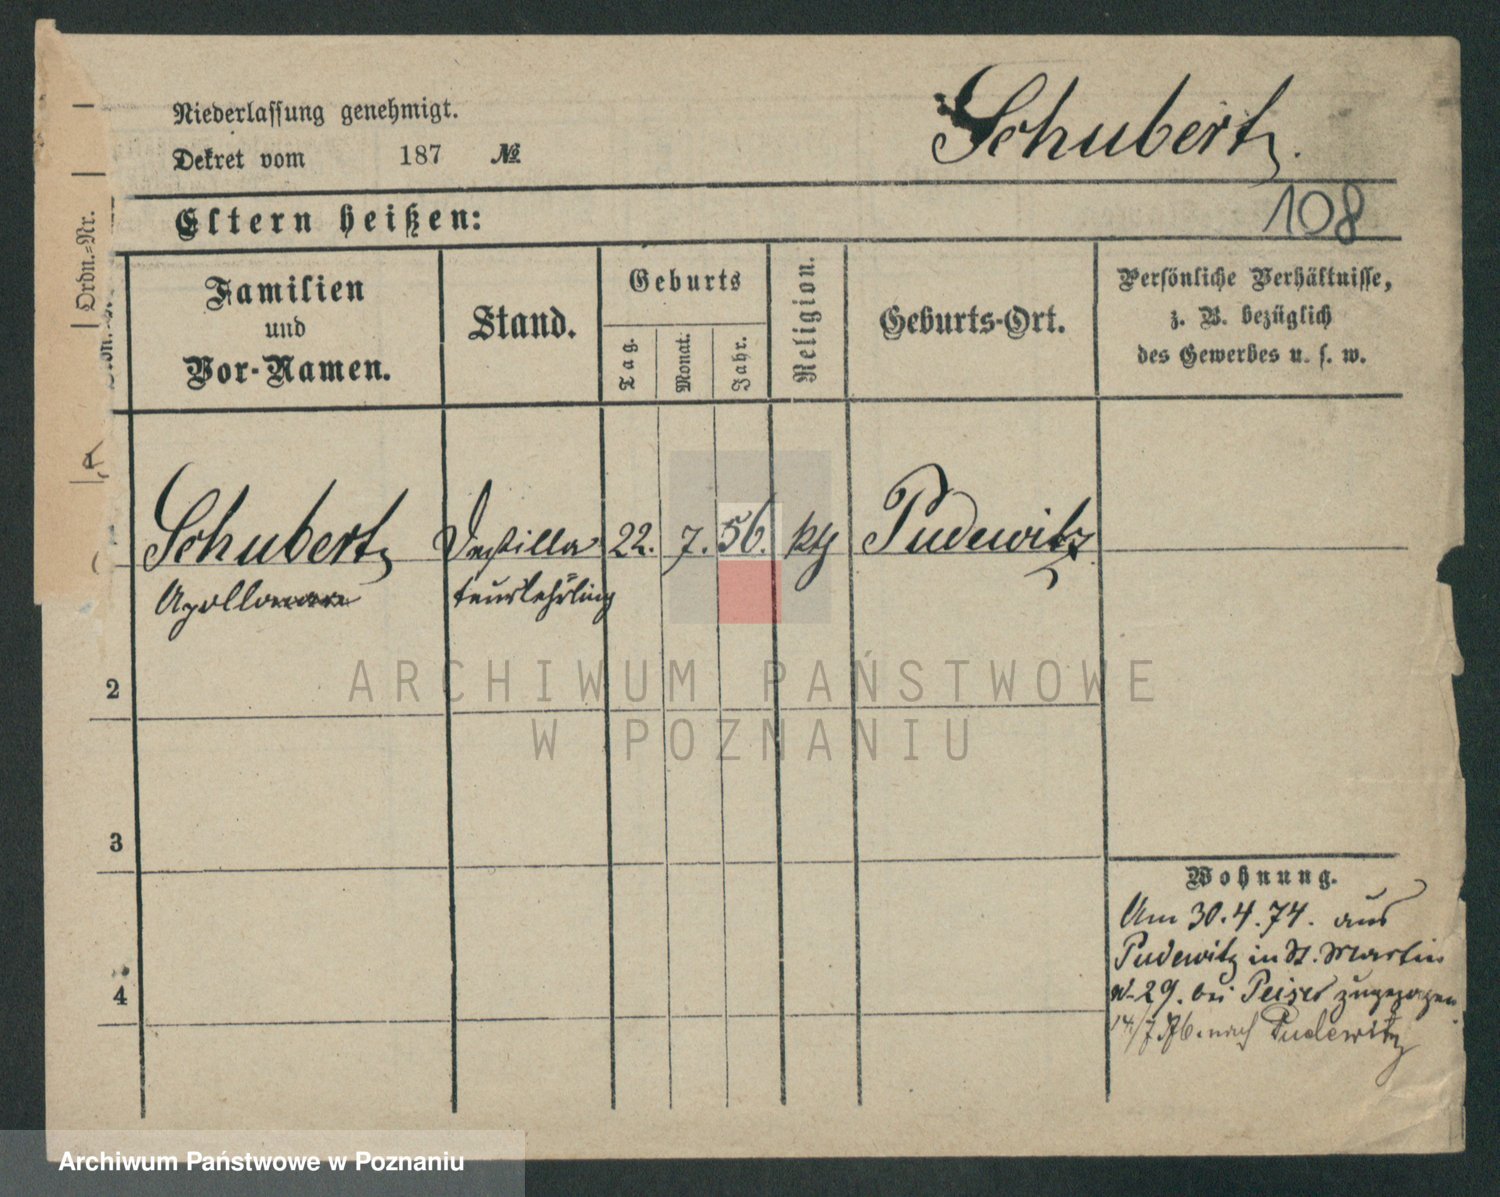 Niederlassung genehmigt.
Dekret vom 187 №
Schubert.
108
Eltern heißen:
Ordn.-Nr.
Familien
und
Vor-Namen.
Stand.
Geburts
Tag.
Monat.
Jahr.
Religion.
Geburts-Ort.
Persönliche Verhältnisse,
z. B. bezüglich
des Gewerbes u. s. w.
1
Schubert Destilla 22. 7. 56. kth Pudewitz
teurlehrling
2
3
4
Wohnung.
Am 30.4.74. aus
Pudewitz in St. Martin
N 29. bei Peiser zugezogen.
14/7 76. nach Pudewitz
ARCHIWUM PAŃSTWOWE
W POZNANIU
Archiwum Państwowe w Poznaniu